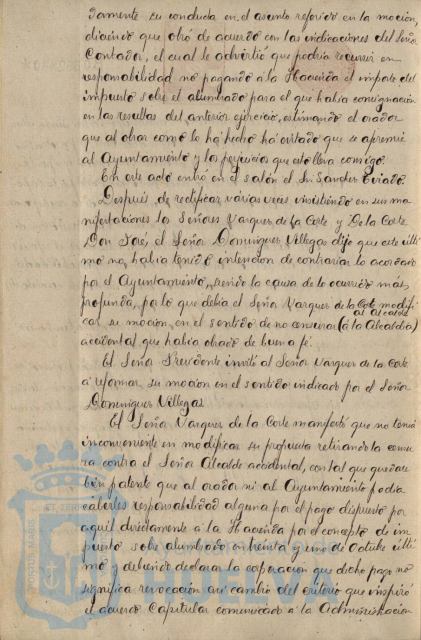 tamente su conducta en el asunto referido en la moción,
diciendo que obró de acuerdo con las indicaciones del Señor
Contador, el cual le advirtió que podría incurrir en
responsabilidad no pagando á la Hacienda el importe del
impuesto sobre el alumbrado para el que había consignación
en las resultas del anterior ejercicio, estimando el orador
que al obrar como lo ha hecho há evitado que se apremie
al Ayuntamiento y los perjuicios que esto lleva consigo.
En este acto entró en el salón el Sr. Sanchez Oviado.
Después, de rectificar várias veces insistiendo en sus ma
nifestaciones lo Señores Vazquez de la Corte y De la Corte
Don José, el Señor Dominguez Villegas dijo que este últi
mo no, había tenido intención de contrariar lo acordado
por el Ayuntamiento, siendo la causa de lo ocurrido más
profunda, por lo que debía el Señor Vazquez de la Corte modifi
car su moción, en el sentido de no censurar (á la Alcaldía)
al Alcalde
accidental que había obrado de buena fé.
El Señor Presidente invitó al Señor Vazquez de la Corte
á reformar su mocion en el sentido indicado por el Señor
Dominguez Villegas
El Señor Vazquez de la Corte manifestó que no tenía
inconveniente en modificar su propuesta retirando la censu
ra contra el Señor Alcalde accidental, con tal que quedare
bien patente que al orador ni al Ayuntamiento podía
caberles responsabilidad alguna por el pago dispuesto por
aquel directamente á la Hacienda por el concepto de im
puesto sobre alumbrado en treinta y uno de Octubre últi
mo y debiendo declarar la corporación que dicho pago no
significa revocación ni cambio del criterio que inspiró
el acuerdo Capitular comunicado á la Administracion
PORTUS MARIS
HUELVA